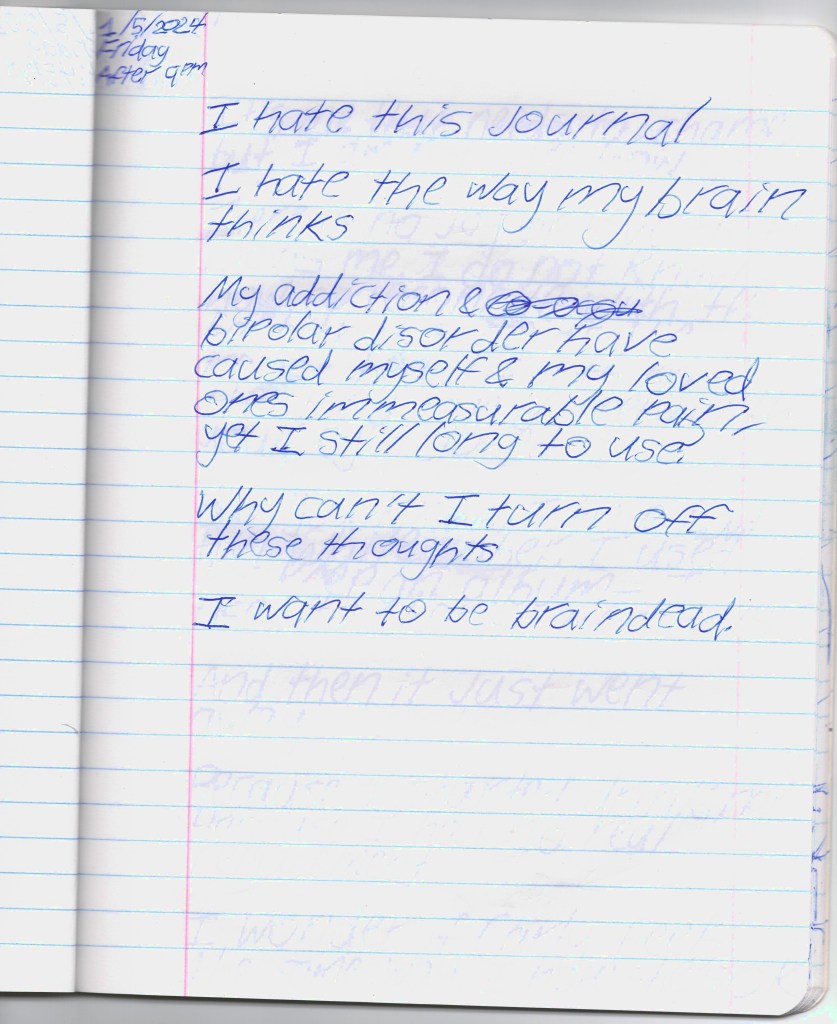 1/5/2024
Friday
After 9pm
I hate this journal
I hate the way my brain
thinks
My addiction &
bipolar disorder have
caused myself & my loved
ones immeasurable pain,
yet I still long to use.
Why can't I turn off
these thoughts
I want to be braindead.
And then it just went